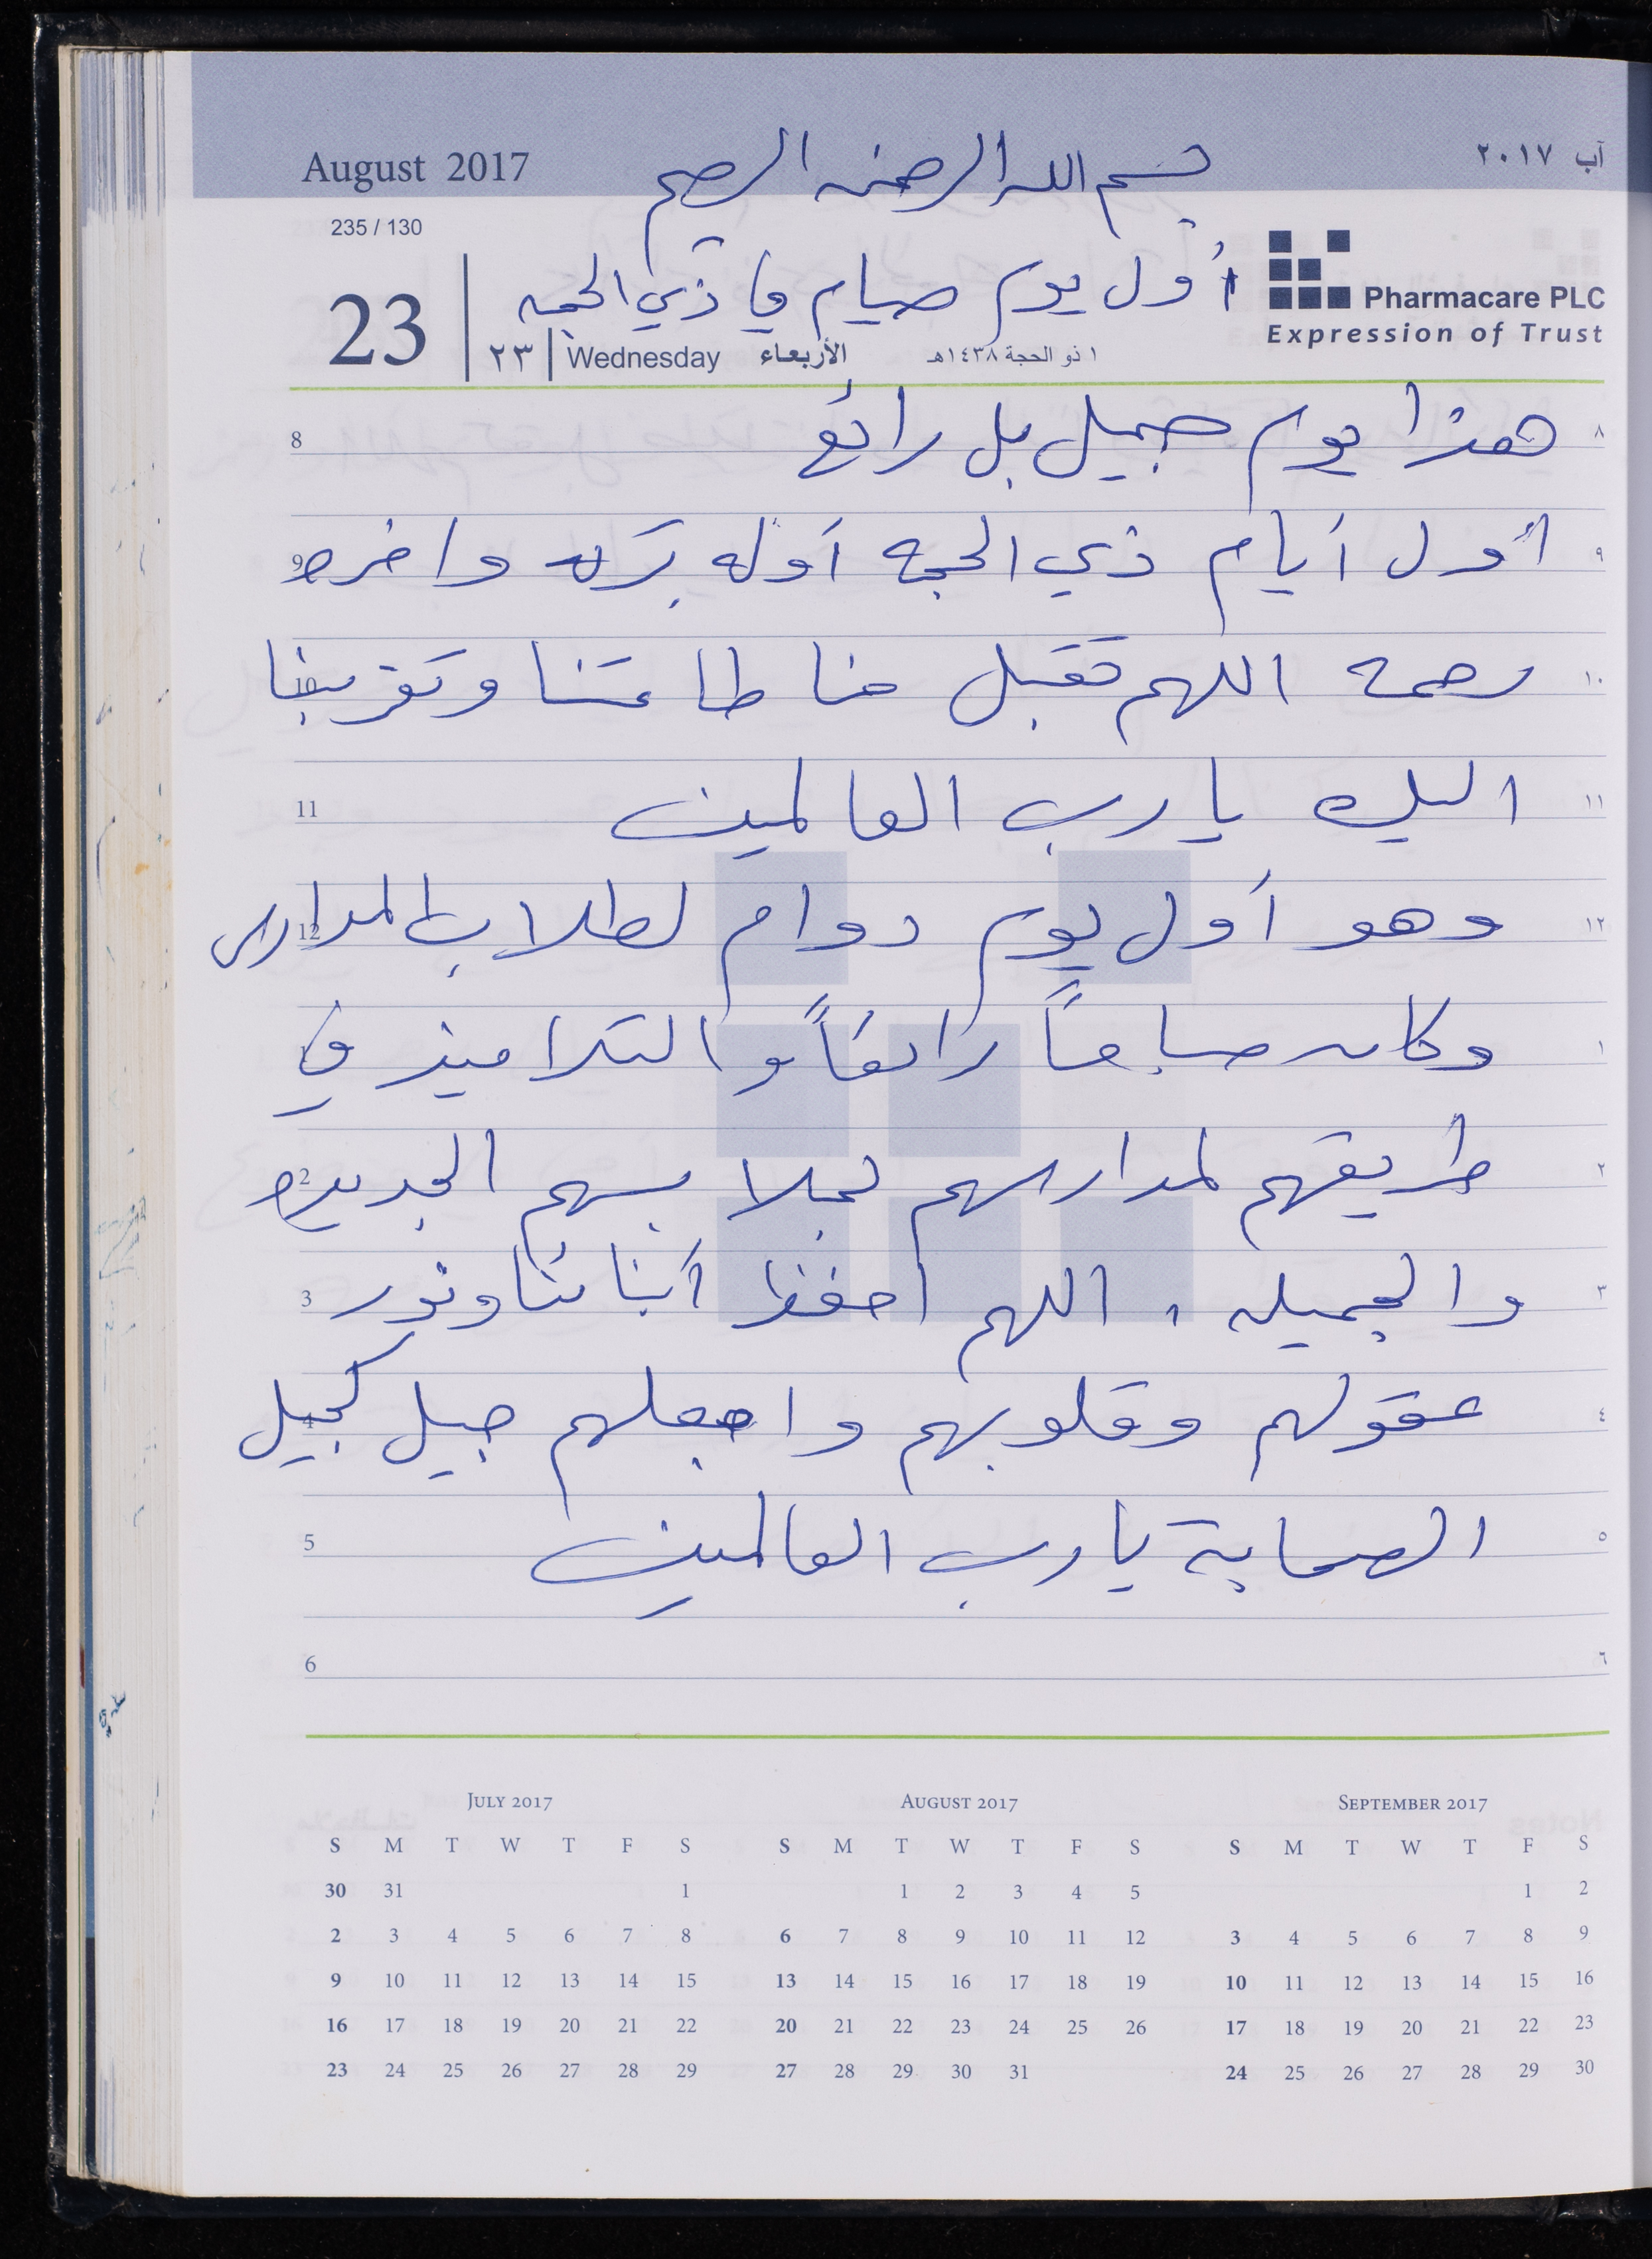 August 2017
بسم الله الرحمن الرحيم
آب ٢٠١٧
235 / 130
أول يوم صيام في ذي الحجه
Pharmacare PLC
Expression of Trust
23
٢٣ Wednesday الأربعاء ١ ذو الحجة ١٤٣٨هـ
8 هذا يوم جميل بل رائع ٨
9 أول أيام ذي الحجه أوله بركه واخره ٩
10 رحمه اللهم تقبل منا طاعتنا وتقربنا ١٠
11 اليك يا رب العالمين ١١
12 وهو أول يوم دوام لطلاب المدارس ١٢
1 وكان صباحاً رائعاً والتلاميذ في ١
2 طريقهم لمدارسهم بملابسهم الجديده ٢
3 والجميله . اللهم احفظ أبنائنا ونور ٣
4 عقولهم وقلوبهم واجعلهم جيل كجيل ٤
5 الصحابة يا رب العالمين ٥
6 ٦
JULY 2017
S M T W T F S
30 31 1
2 3 4 5 6 7 8
9 10 11 12 13 14 15
16 17 18 19 20 21 22
23 24 25 26 27 28 29
AUGUST 2017
S M T W T F S
1 2 3 4 5
6 7 8 9 10 11 12
13 14 15 16 17 18 19
20 21 22 23 24 25 26
27 28 29 30 31
SEPTEMBER 2017
S M T W T F S
1 2
3 4 5 6 7 8 9
10 11 12 13 14 15 16
17 18 19 20 21 22 23
24 25 26 27 28 29 30